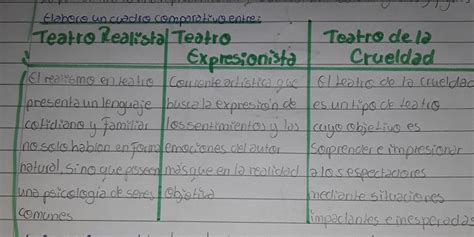 Elaboro un cuadro comparativo entre:
Teatro Realista
El realismo en teatro
presenta un lenguaje
cotidiano y familiar
no solo hablan en forma
natural, sino que poseen
una psicología de seres
comunes
Teatro
Expresionista
Corriente artística que
busca la expresión de
los sentimientos y las
emociones del autor
más que en la realidad
objetiva
Teatro de la
Crueldad
El teatro de la crueldad
es un tipo de teatro
cuyo objetivo es
sorprender e impresionar
a los espectadores
mediante situaciones
impactantes e inesperadas